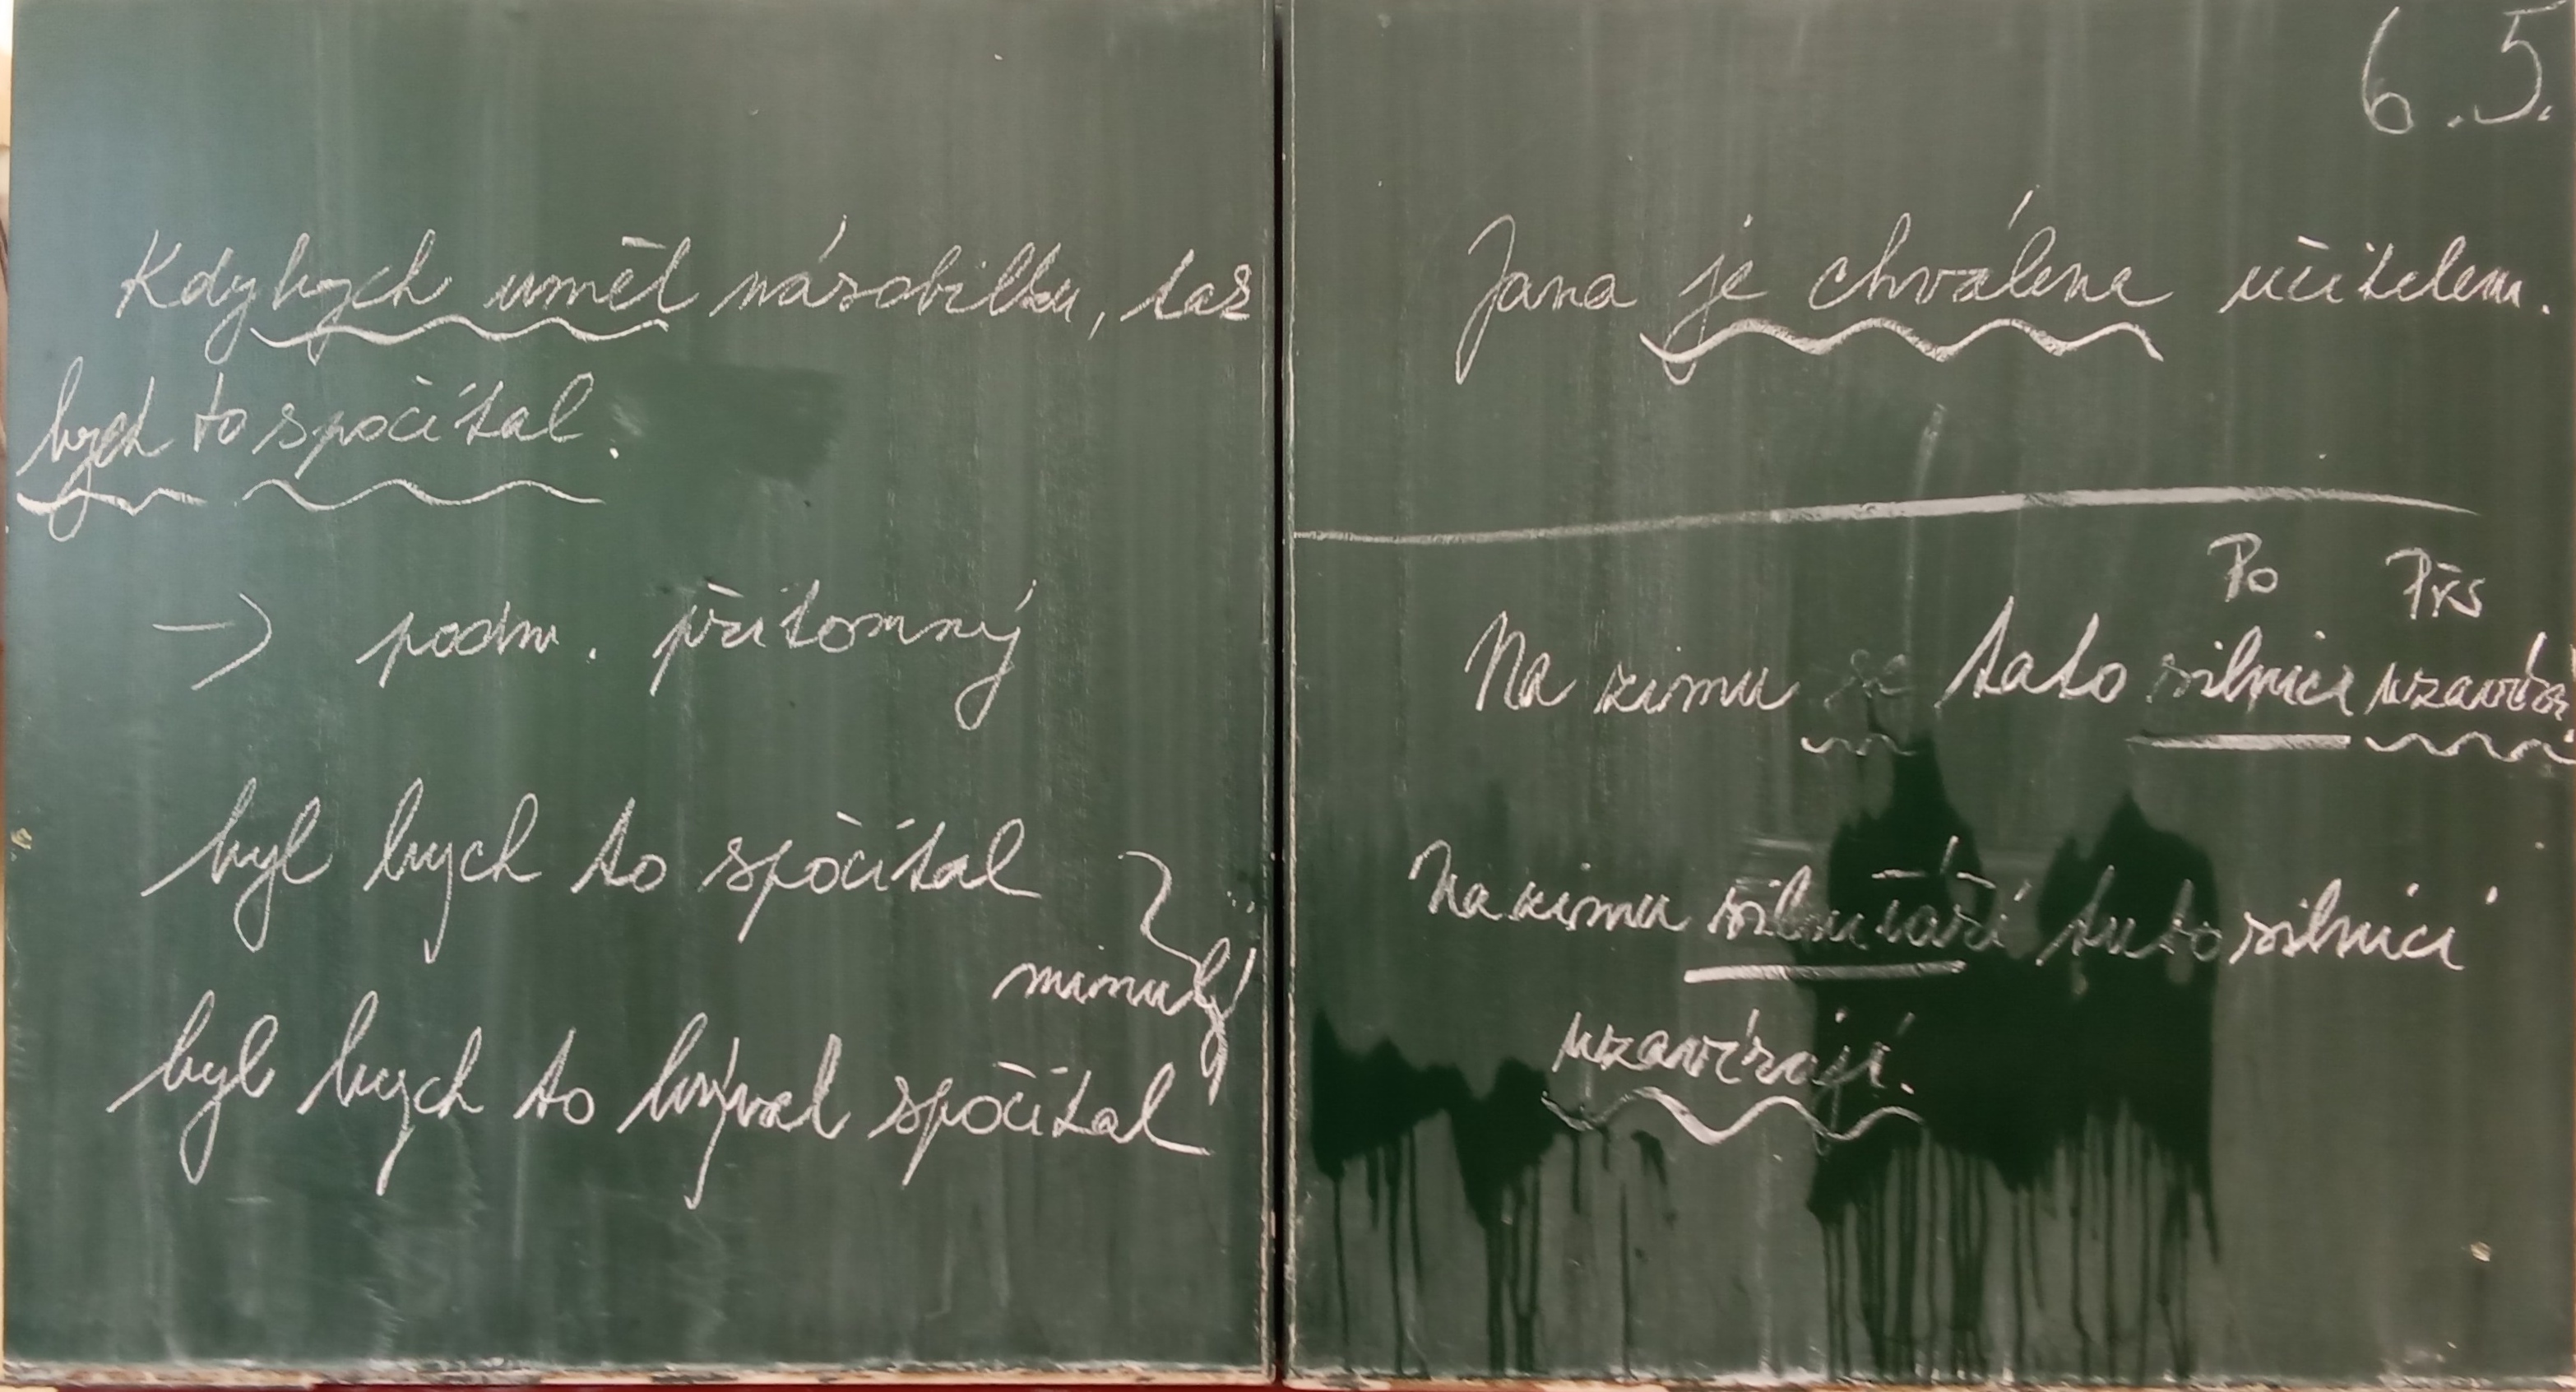 Kdybych uměl násobilku, tak
bych to spočítal.
→ podm. přítomný
byl bych to spočítal
minulý
byl bych to býval spočítal
6.5.
Jana je chválena učitelem.
Po Přs
Na zimu se tato silnice uzavírá
Na zimu silničáři tuto silnici
uzavírají.